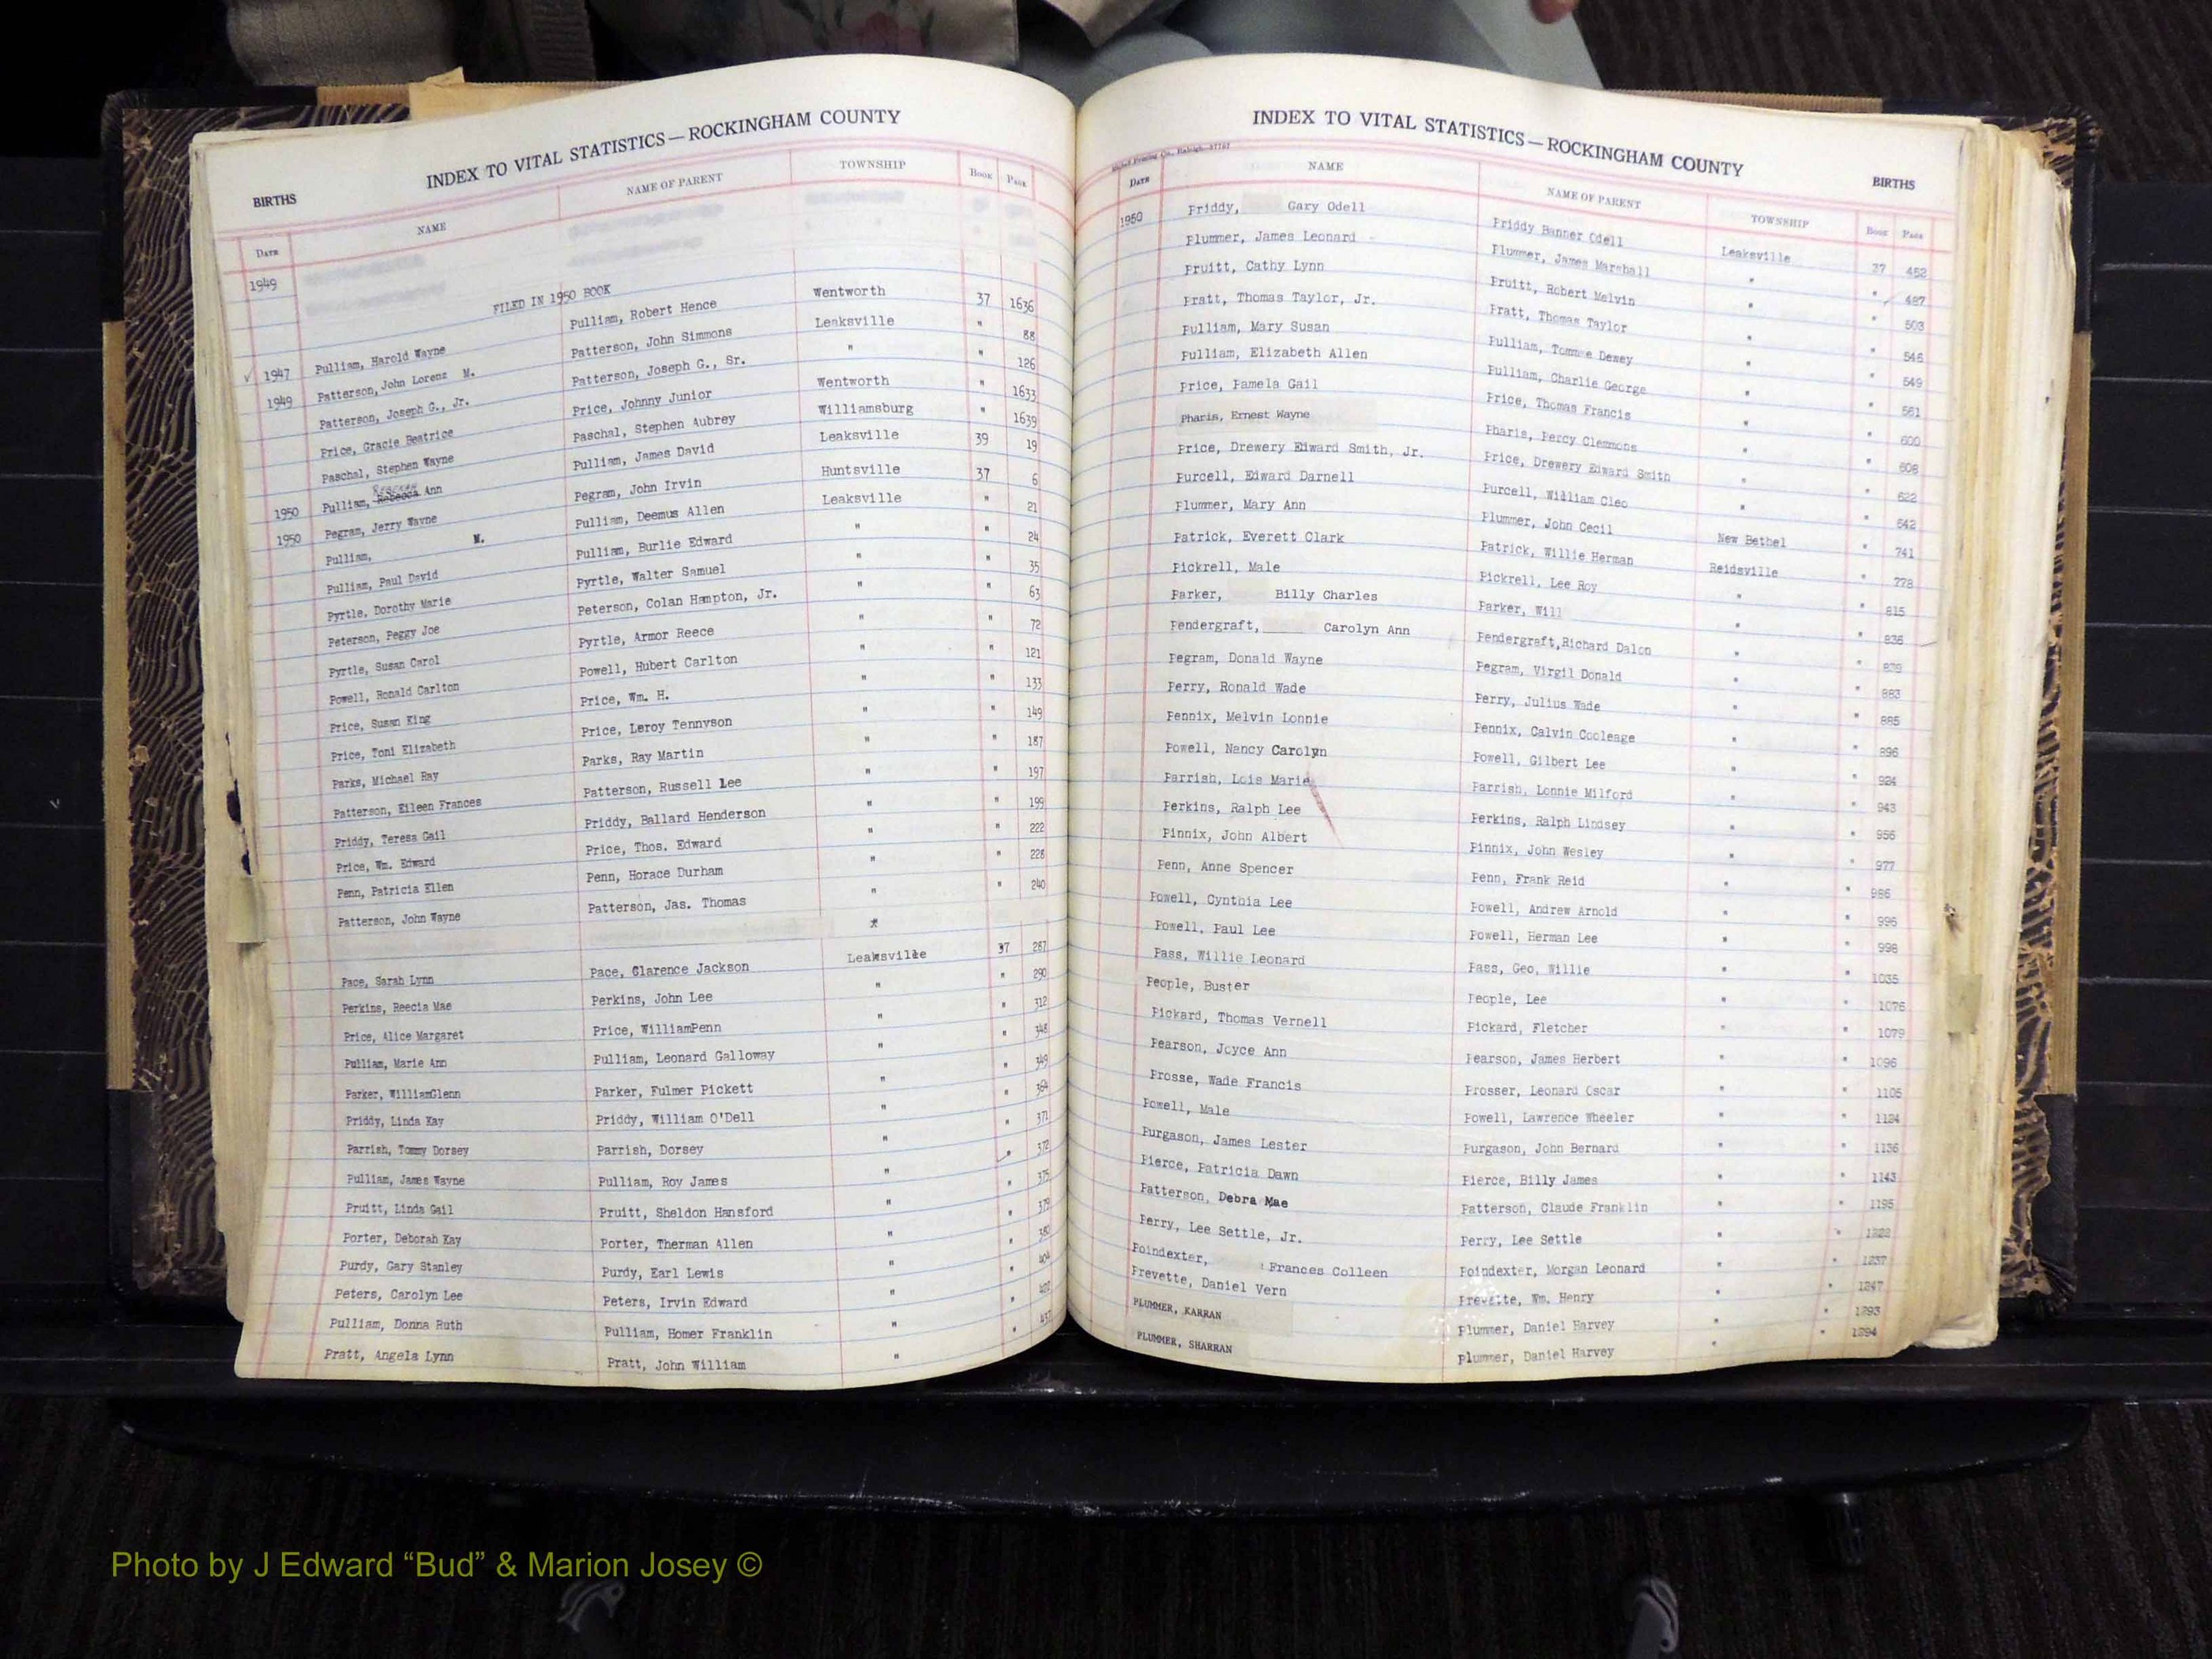 INDEX TO VITAL STATISTICS — ROCKINGHAM COUNTY
BIRTHS
DATE NAME NAME OF PARENT TOWNSHIP BOOK PAGE
1949
FILED IN 1950 BOOK
✓ 1947 Pulliam, Harold Wayne Pulliam, Robert Hence Wentworth 37 1636
1949 Patterson, John Lorenz M. Patterson, John Simmons Leaksville " 88
Patterson, Joseph G., Jr. Patterson, Joseph G., Sr. " " 126
Price, Gracie Beatrice Price, Johnny Junior Wentworth " 1633
Paschal, Stephen Wayne Paschal, Stephen Aubrey Williamsburg " 1639
1950 Pulliam, Rebecca Ann Pulliam, James David Leaksville 39 19
1950 Pegram, Jerry Wayne Pegram, John Irvin Huntsville 37 6
Pulliam, M. Pulliam, Deemus Allen Leaksville " 21
Pulliam, Paul David Pulliam, Burlie Edward " " 24
Pyrtle, Dorothy Marie Pyrtle, Walter Samuel " " 35
Peterson, Peggy Joe Peterson, Colan Hampton, Jr. " " 63
Pyrtle, Susan Carol Pyrtle, Armor Reece " " 72
Powell, Ronald Carlton Powell, Hubert Carlton " " 121
Price, Susan King Price, Wm. H. " " 133
Price, Toni Elizabeth Price, Leroy Tennyson " " 149
Parks, Michael Ray Parks, Ray Martin " " 187
Patterson, Eileen Frances Patterson, Russell Lee " " 197
Priddy, Teresa Gail Priddy, Ballard Henderson " " 199
Price, Wm. Edward Price, Thos. Edward " " 222
Penn, Patricia Ellen Penn, Horace Durham " " 228
Patterson, John Wayne Patterson, Jas. Thomas " " 240
Pace, Sarah Lynn Pace, Clarence Jackson Leaksville 37 287
Perkins, Reecia Mae Perkins, John Lee " " 290
Price, Alice Margaret Price, WilliamPenn " " 312
Pulliam, Marie Ann Pulliam, Leonard Galloway " " 348
Parker, WilliamGlenn Parker, Fulmer Pickett " " 349
Priddy, Linda Kay Priddy, William O'Dell " " 364
Parrish, Tommy Dorsey Parrish, Dorsey " " 371
Pulliam, James Wayne Pulliam, Roy James " " 372
Pruitt, Linda Gail Pruitt, Sheldon Hansford " " 375
Porter, Deborah Kay Porter, Therman Allen " " 379
Purdy, Gary Stanley Purdy, Earl Lewis " " 380
Peters, Carolyn Lee Peters, Irvin Edward " " 404
Pulliam, Donna Ruth Pulliam, Homer Franklin " "
Pratt, Angela Lynn Pratt, John William " " 437
INDEX TO VITAL STATISTICS — ROCKINGHAM COUNTY
BIRTHS
DATE NAME NAME OF PARENT TOWNSHIP BOOK PAGE
1950 Priddy, Gary Odell Priddy Banner Odell Leaksville 37 452
Plummer, James Leonard Plummer, James Marshall " " 487
Pruitt, Cathy Lynn Pruitt, Robert Melvin " " 503
Pratt, Thomas Taylor, Jr. Pratt, Thomas Taylor " 546
Pulliam, Mary Susan Pulliam, Tommie Dewey " " 549
Pulliam, Elizabeth Allen Pulliam, Charlie George " " 561
Price, Pamela Gail Price, Thomas Francis " " 600
Pharis, Ernest Wayne Pharis, Percy Clemmons " " 608
Price, Drewery Edward Smith, Jr. Price, Drewery Edward Smith " " 622
Purcell, Edward Darnell Purcell, William Cleo " " 642
Plummer, Mary Ann Plummer, John Cecil New Bethel " 741
Patrick, Everett Clark Patrick, Willie Herman Reidsville " 778
Pickrell, Male Pickrell, Lee Roy " " 815
Parker, Billy Charles Parker, Will " " 836
Pendergraft, Carolyn Ann Pendergraft,Richard Dalon " "
Pegram, Donald Wayne Pegram, Virgil Donald " " 883
Perry, Ronald Wade Perry, Julius Wade " " 885
Pennix, Melvin Lonnie Pennix, Calvin Cooleage " " 896
Powell, Nancy Carolyn Powell, Gilbert Lee " " 924
Parrish, Lois Marie Parrish, Lonnie Milford " " 943
Perkins, Ralph Lee Perkins, Ralph Lindsey " " 956
Pinnix, John Albert Pinnix, John Wesley " " 977
Penn, Anne Spencer Penn, Frank Reid " " 986
Powell, Cynthia Lee Powell, Andrew Arnold " " 996
Powell, Paul Lee Powell, Herman Lee " " 998
Pass, Willie Leonard Pass, Geo, Willie " " 1035
People, Buster People, Lee " " 1076
Pickard, Thomas Vernell Pickard, Fletcher " " 1079
Pearson, Joyce Ann Pearson, James Herbert " " 1096
Prosse, Wade Francis Prosser, Leonard Oscar " " 1105
Powell, Male Powell, Lawrence Wheeler " " 1124
Purgason, James Lester Purgason, John Bernard " " 1136
Pierce, Patricia Dawn Pierce, Billy James " " 1143
Patterson, Debra Mae Patterson, Claude Franklin " " 1195
Perry, Lee Settle, Jr. Perry, Lee Settle " " 1222
Poindexter, Frances Colleen Poindexter, Morgan Leonard " " 1237
Prevette, Daniel Vern Prevette, Wm. Henry " " 1247
PLUMMER, KARRAN Plummer, Daniel Harvey " " 1293
PLUMMER, SHARRAN Plummer, Daniel Harvey " " 1294
Photo by J Edward “Bud” & Marion Josey ©